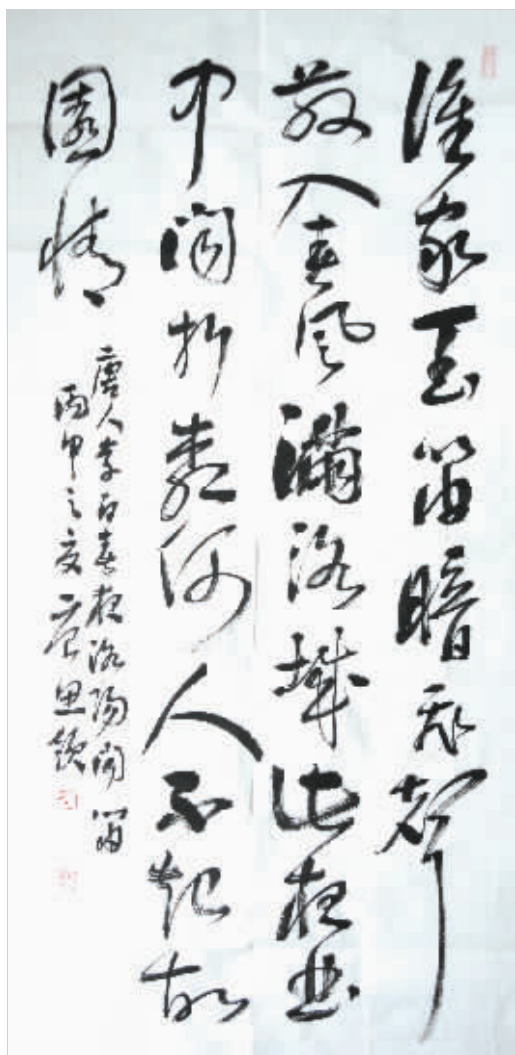 誰家玉笛暗飛聲
散入春風滿洛城此夜曲
中聞折柳何人不起故
園情
唐人李白春夜洛陽聞笛
丙申之夏